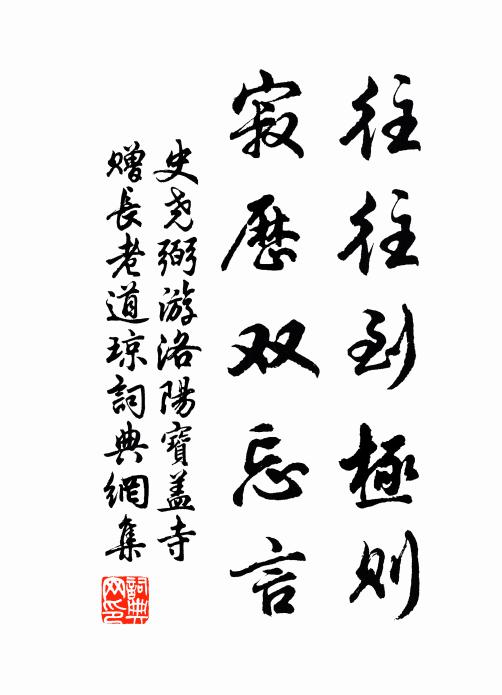 往往到極則
寂歷双忘言
史尧弼游洛陽寶盖寺
贈長老道琼詞典網集
詞典網印